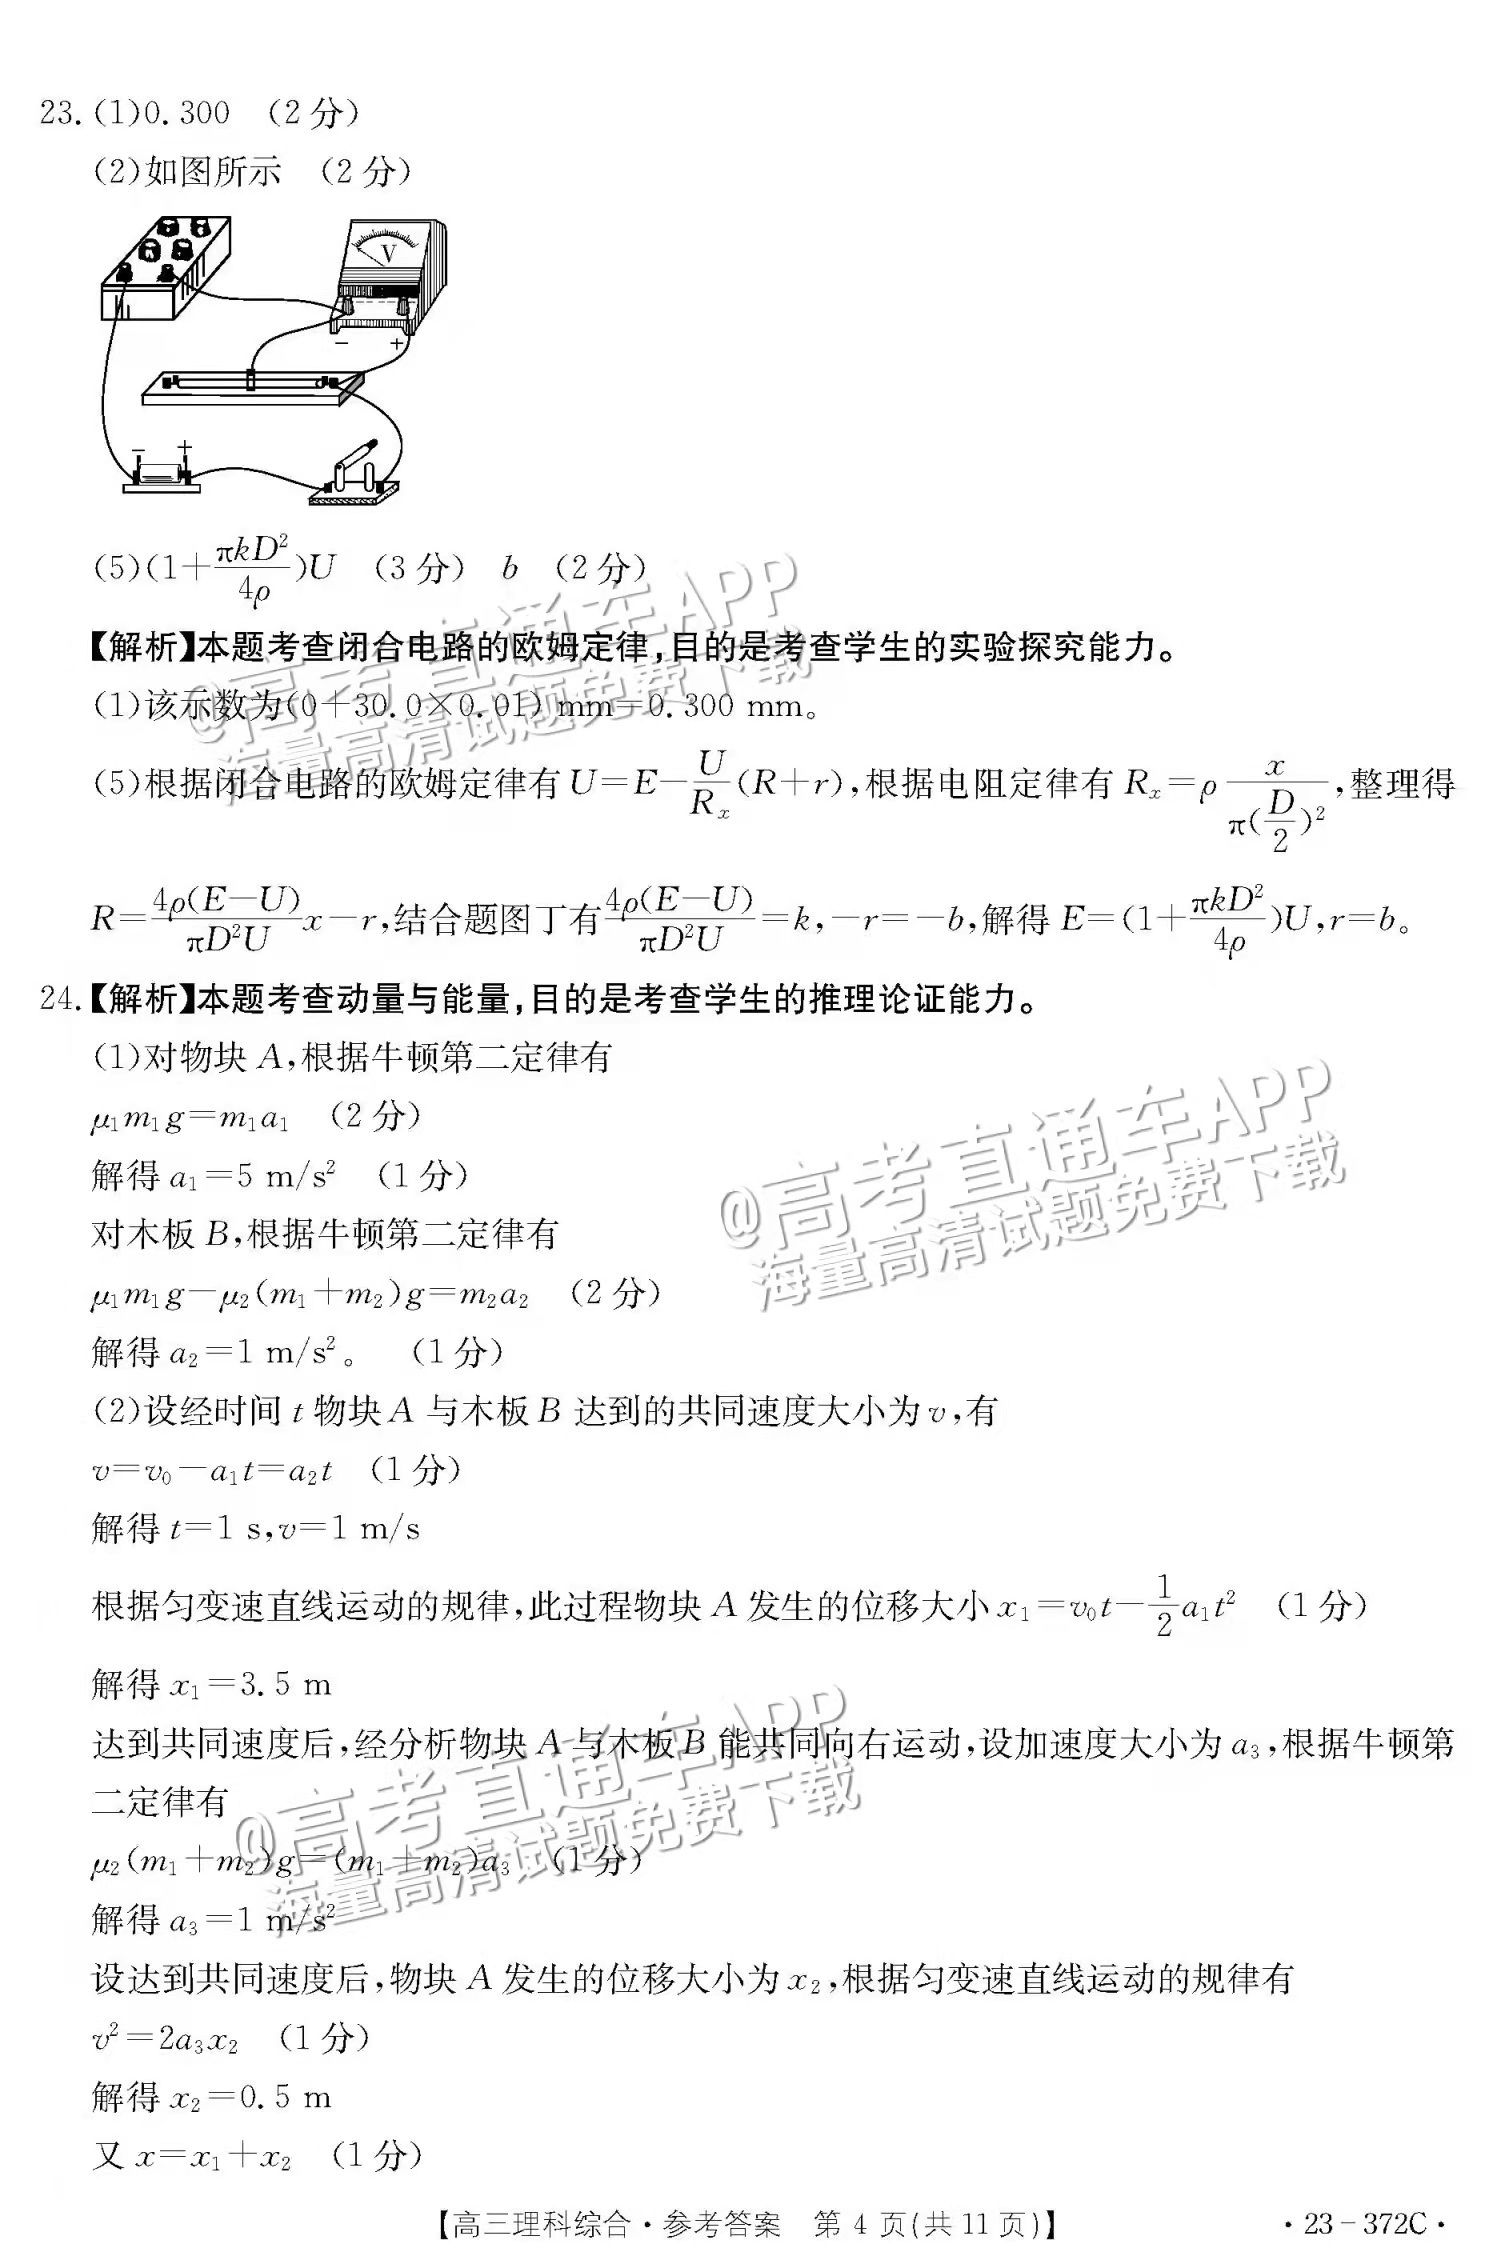 23.(1)0.300 (2分)
(2)如图所示 (2分)
V
- +
- +
(5)(1+πkD²/4ρ)U (3分) b (2分)
【解析】本题考查闭合电路的欧姆定律,目的是考查学生的实验探究能力。
(1)该示数为(0+30.0×0.01) mm=0.300 mm。
(5)根据闭合电路的欧姆定律有U=E-U/Rₓ(R+r),根据电阻定律有Rₓ=ρ x/π(D/2)²,整理得
R=4ρ(E-U)/πD²U x-r,结合题图丁有4ρ(E-U)/πD²U=k,-r=-b,解得E=(1+πkD²/4ρ)U,r=b。
24.【解析】本题考查动量与能量,目的是考查学生的推理论证能力。
(1)对物块A,根据牛顿第二定律有
μ₁m₁g=m₁a₁ (2分)
解得a₁=5 m/s² (1分)
对木板B,根据牛顿第二定律有
μ₁m₁g-μ₂(m₁+m₂)g=m₂a₂ (2分)
解得a₂=1 m/s²。 (1分)
(2)设经时间t物块A与木板B达到的共同速度大小为v,有
v=v₀-a₁t=a₂t (1分)
解得t=1 s,v=1 m/s
根据匀变速直线运动的规律,此过程物块A发生的位移大小x₁=v₀t-1/2a₁t² (1分)
解得x₁=3.5 m
达到共同速度后,经分析物块A与木板B能共同向右运动,设加速度大小为a₃,根据牛顿第
二定律有
μ₂(m₁+m₂)g=(m₁+m₂)a₃ (1分)
解得a₃=1 m/s²
设达到共同速度后,物块A发生的位移大小为x₂,根据匀变速直线运动的规律有
v²=2a₃x₂ (1分)
解得x₂=0.5 m
又x=x₁+x₂ (1分)
【高三理科综合·参考答案 第4页(共11页)】 ·23-372C·
@高考直通车APP
海量高清试题免费下载
@高考直通车APP
海量高清试题免费下载
@高考直通车APP
海量高清试题免费下载